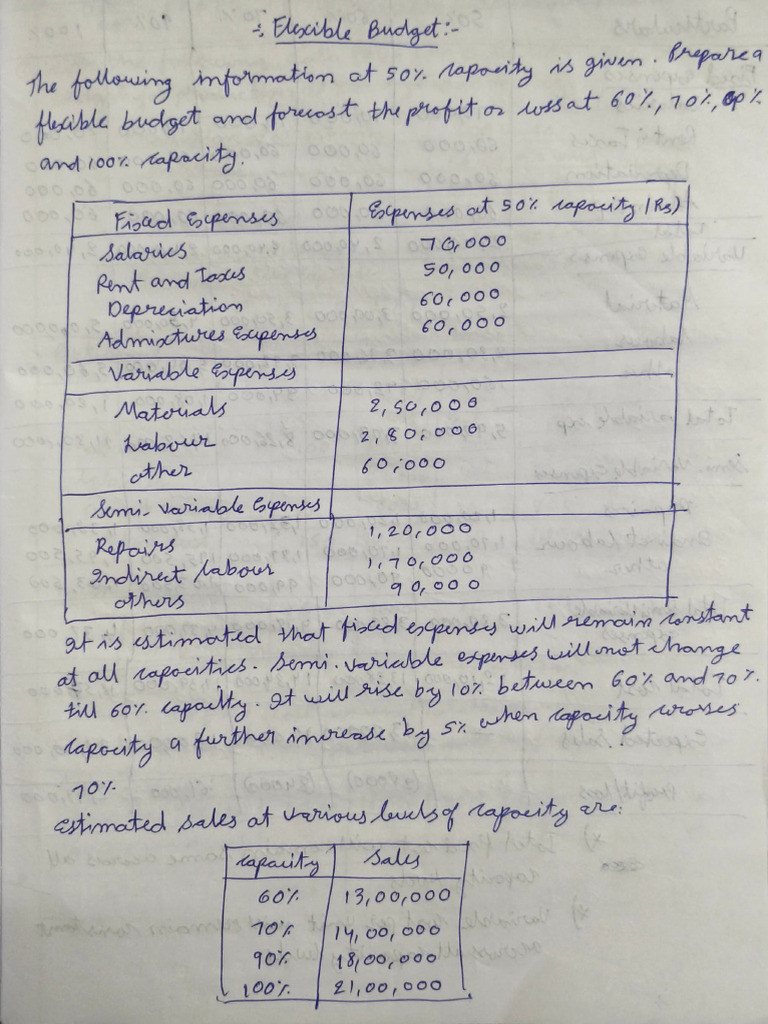 :- Flexible Budget:-
The following information at 50% capacity is given. Prepare a
flexible budget and forecast the profit or loss at 60%, 70%, 90%
and 100% capacity.
Fixed Expenses Expenses at 50% capacity (Rs)
Salaries 70,000
Rent and Taxes 50,000
Depreciation 60,000
Admixtures Expenses 60,000
Variable Expenses
Materials 2,50,000
Labour 2,80,000
other 60,000
Semi-Variable Expenses
Repairs 1,20,000
Indirect Labour 1,70,000
others 90,000
It is estimated that fixed expenses will remain constant
at all capacities. Semi-variable expenses will not change
till 60% capacity. It will rise by 10% between 60% and 70%
capacity a further increase by 5% when capacity crosses
70%.
Estimated sales at various levels of capacity are:
Capacity Sales
60% 13,00,000
70% 14,00,000
90% 18,00,000
100% 21,00,000